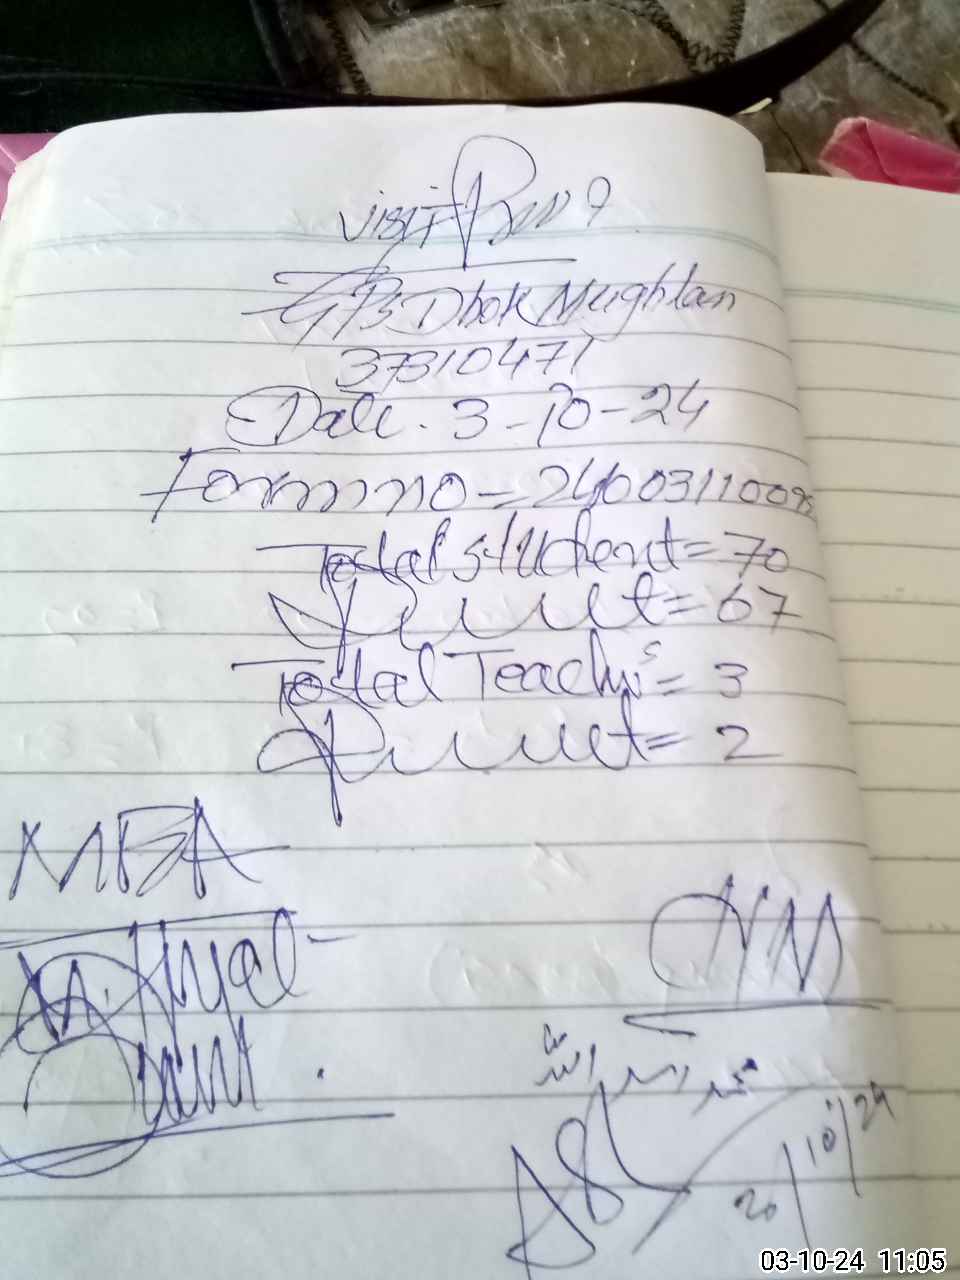 Visit
GPS Dhok Mughlan
37310471
Date. 3-10-24
Form no = 24003110095
Total student = 70
Present = 67
Total Teachers = 3
Present = 2
MEA
HM
20/10/24
03-10-24 11:05